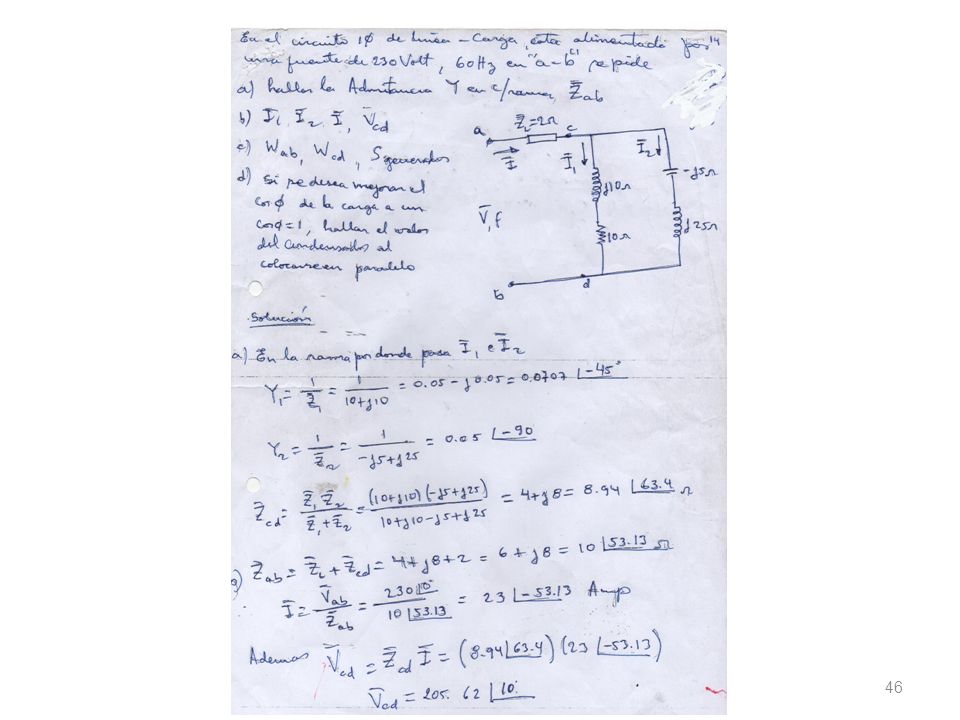 En el circuito 1φ de linea - carga, esta alimentado por
una fuente de 230 Volt, 60Hz en "a-b" se pide
a) hallar la Admitancia Y en c/rama, Z̄ab
b) Ī1, Ī2, Ī, V̄cd
c) Wab, Wcd, Sgenerador
d) Si se desea mejorar el
cosφ de la carga a un
cosφ=1, hallar el valor
del condensador al
colocarse en paralelo
a
Z̄L=2Ω
c
Ī
Ī1
Ī2
-j5Ω
j10Ω
V̄, f
10Ω
j25Ω
b
d
Solución
a) En la rama por donde pasa Ī1 e Ī2
Y1 = 1/Z̄1 = 1/(10+j10) = 0.05 - j0.05 = 0.0707 |-45°
Y2 = 1/Z̄2 = 1/(-j5+j25) = 0.05 |-90
Z̄cd = Z̄1 Z̄2/(Z̄1+Z̄2) = (10+j10)(-j5+j25)/(10+j10-j5+j25) = 4+j8 = 8.94 |63.4 Ω
Z̄ab = Z̄L + Z̄cd = 4+j8+2 = 6+j8 = 10 |53.13 Ω
Ī = V̄ab/Z̄ab = 230|0°/10|53.13 = 23 |-53.13 Amp
Ademas V̄cd = Z̄cd Ī = (8.94|63.4)(23|-53.13)
V̄cd = 205.62 |10.
46